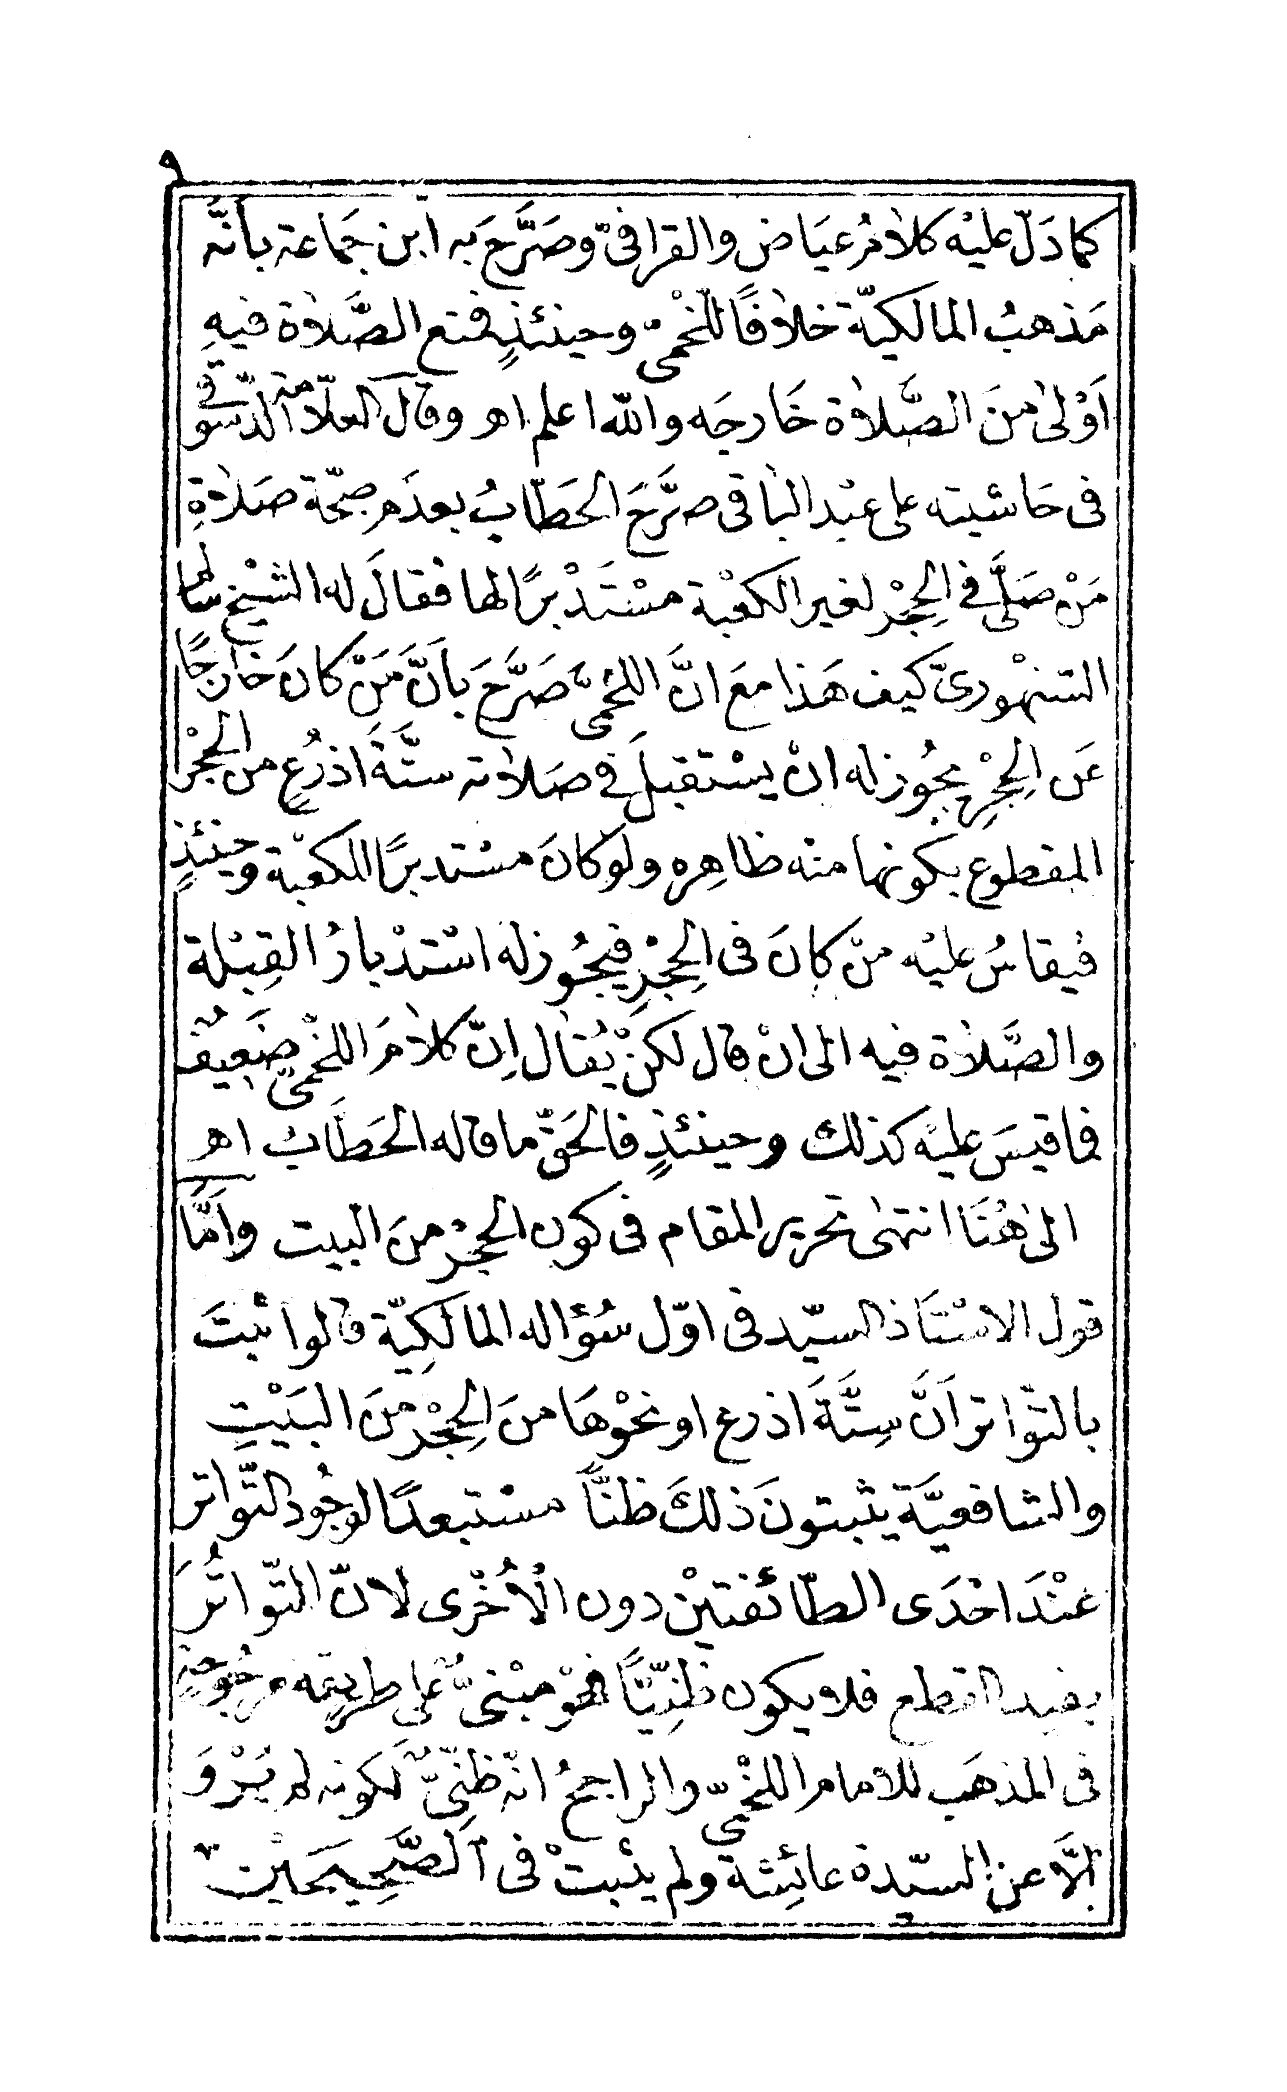 ٩
كما دَلّ عليْه كلامُ عيَاض والقرافىّ وصَرَّحَ به ابن جَماعة بأنّه
مَذهبُ المالكيّة خلافًا للّخْمىّ وحينئذٍ فمنع الصَّلاة فيهِ
اَوْلىٰ منَ الصَّلاة خَارجَه والله اعلم اهـ وقالَ العلّامة الدّسوقى
فى حَاشيته على عبْد الباقى صرَّحَ الحَطّابُ بعدَم صِحّة صَلاةِ
مَنْ صَلَّى فى الحِجْر لغير الكعْبة مسْتَدْبرًا لها فقالَ له الشيْخ سالم
السّنهْورىّ كيف هَذا معَ انَّ اللخْمىّ صَرَّحَ بأنَّ مَنْ كانَ خارجًا
عَن الحِجْرِ يجُوز له انْ يسْتقبلَ فى صَلاته ستَّةَ اذرُعٍ من الحِجْر
المقطوع بكونها منه ظاهره ولوْ كانَ مسْتدبرًا للكعْبة وحينئذٍ
فيقاسُ عليْه منْ كانَ فى الحِجْرِ فيجُوز له اسْتدْبارُ القِبْلة
والصَّلاة فيه الى انْ قال لكنْ يُقال اِنّ كلامَ اللخْمىّ ضَعِيْفٌ
فما قيسَ عليْه كذلك وحينئذٍ فالحَقّ ما قاله الحَطّابُ اهـ
الىٰ هُنَا انتهىٰ تحرير المقام فى كون الحِجْر منَ البيت واَمَّا
قول الاسْتَاذ السيّد فى اوّل سُؤاله المالكِيّة قالوا ثبتَ
بالتّواتر اَنَّ سِتَّةَ اذرع او نحْوهَا منَ الحِجْر منَ البَيْتِ
والشافعيَّة يثبتونَ ذلكَ ظنًّا مسْتبعدًا لوجُود التّواتر
عنْدَ احْدَى الطّائفتيْن دون الْأُخْرى لانّ التّواتُرَ
يفيد القطع فلا يكون ظنِّيًّا فهْوَ مبْنىٌّ على طريقة مرجُوحَةٍ
فى المذهَب للامام اللخْمىّ والراجحُ انّه ظنّىٌّ لكونه لم يُرْوَ
اِلَّا عن السيّدة عائِشة ولم يثبتْ فى الصَّحِيحَيْن